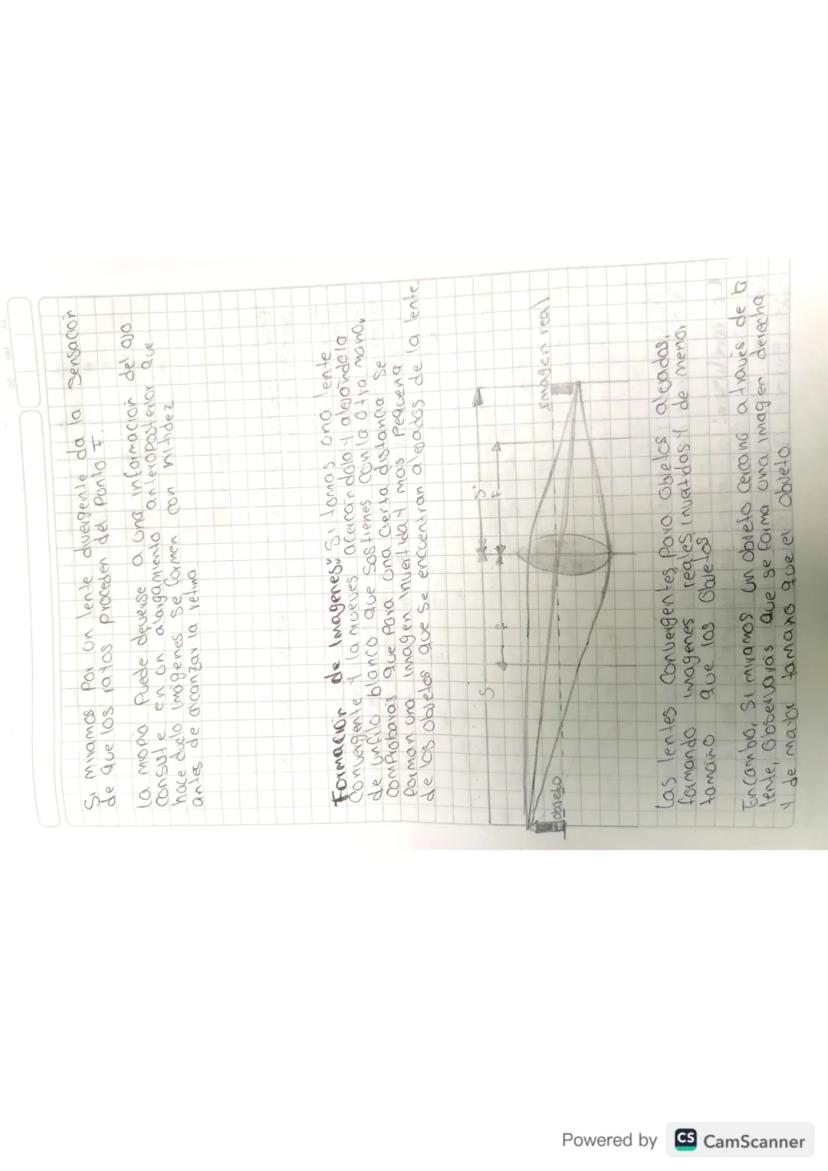 Si miramos por un lente divergente da la sensación
de que los rayos proceden del Punto F.
La miopía Puede deverse a una informacion del ojo
consiste en un alargamiento anteroposterior que
hace que las imágenes se formen con nitidez
antes de alcanzar la retina
Formación de Imagenes: Si tomas una lente
convergente y la mueves acercándola y alejándola
de un folio blanco que sostienes con la otra mano,
comprobaras que para una cierta distancia se
forman una imagen invertida y mas pequeña
de los objetos que se encuentran alejados de la lente.
S
S'
f
F
objeto
Imagen real
Las lentes convergentes, para objetos alejados,
formando imagenes reales invertidas y de menor
tamaño que los objetos
En cambio, si miramos un objeto cercano a través de la
lente, observarás que se forma una imagen derecha
y de mayor tamaño que el objeto.
Powered by CS CamScanner